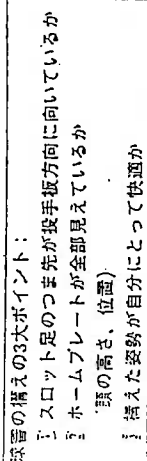 球審の構えの3大ポイント：
1. スロット足のつま先が投手板方向に向いているか
2. ホームプレートが全部見えているか
(頭の高さ、位置)
3. 構えた姿勢が自分にとって快適か